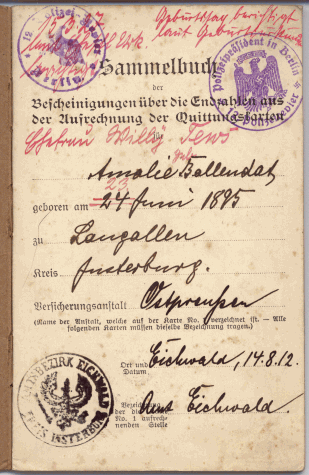 Geburtstag berichtigt
laut Geburtsurkunde
Sammelbuch
der
Bescheinigungen über die Endzahlen aus
der Aufrechnung der Quittungskarten
für
Ehefrau Willy Tews
geb.
Amalie Ballendat
23
geboren am 24 Juni 1895
zu Langallen
Kreis Insterburg.
Versicherungsanstalt Ostpreußen
(Name der Anstalt, welche auf der Karte No. verzeichnet ist. — Alle
folgenden Karten müssen dieselbe Bezeichnung tragen.)
Ort und
Datum Eichwald, 14.8.12.
Bezeichnung
der die
No. 1 aufrech-
nenden Stelle
Amt Eichwald.
Polizeipräsident in Berlin
AMTSBEZIRK EICHWALD
KREIS INSTERBURG